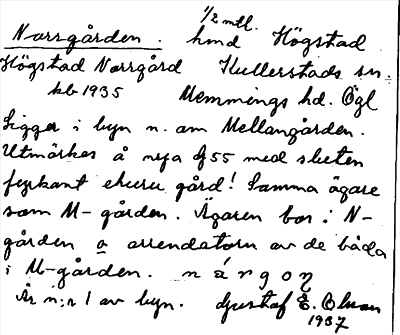 1/2 mtl.
Norrgården. hmd Högstad
Högstad Norrgård Kullerstads sn.
kb 1935 Memmings hd. Ögl
Ligger i byn n. om Mellangården.
Utmärkes å nya G 55 med sluten
fyrkant ehuru gård! Samma ägare
som M-gården. Ägaren bor i N-
gården o arrendatorn av de båda
i M-gården. nárgoη
Är n:r 1 av byn. Gustaf E. Olsson
1937